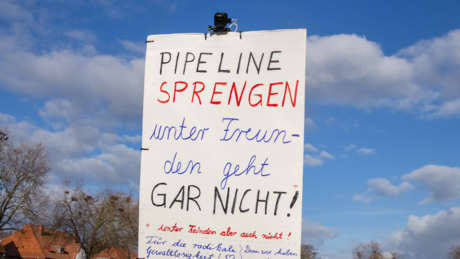 PIPELINE
SPRENGEN
unter Freun-
den geht
GAR NICHT!
* unter Feinden aber auch nicht!
Für die radikale Denn wir haben
Gewaltlosigkeit!